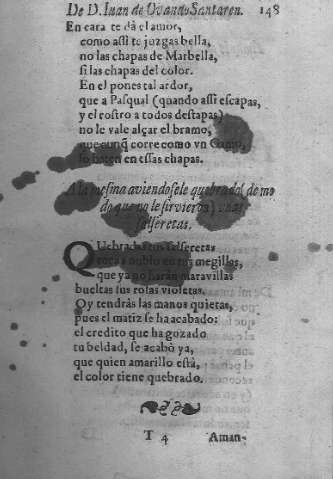 De D. Iuan de Ouando Santaren. 148
En cara te dà el amor,
como assi te juzgas bella,
no las chapas de Marbella,
si las chapas del color.
En el pones tal ardor,
que a Pasqual (quando assi escapas,
y el rostro a todos destapas)
no le vale alçar el bramo,
que aunq̃ corre como vn Gamo,
lo baten en essas chapas.
A la mesma aviendosele quebrado( de mo
do que no le sirvieron) vnas
salseretas.
QVebradas tus salseretas
toca a nublo en tus megillas,
que ya no harán maravillas
bueltas sus rosas violetas.
Oy tendràs las manos quietas,
pues el matiz se ha acabado:
el credito que ha gozado
tu beldad, se acabò ya,
que quien amarillo està,
el color tiene quebrado.
T 4 Aman-